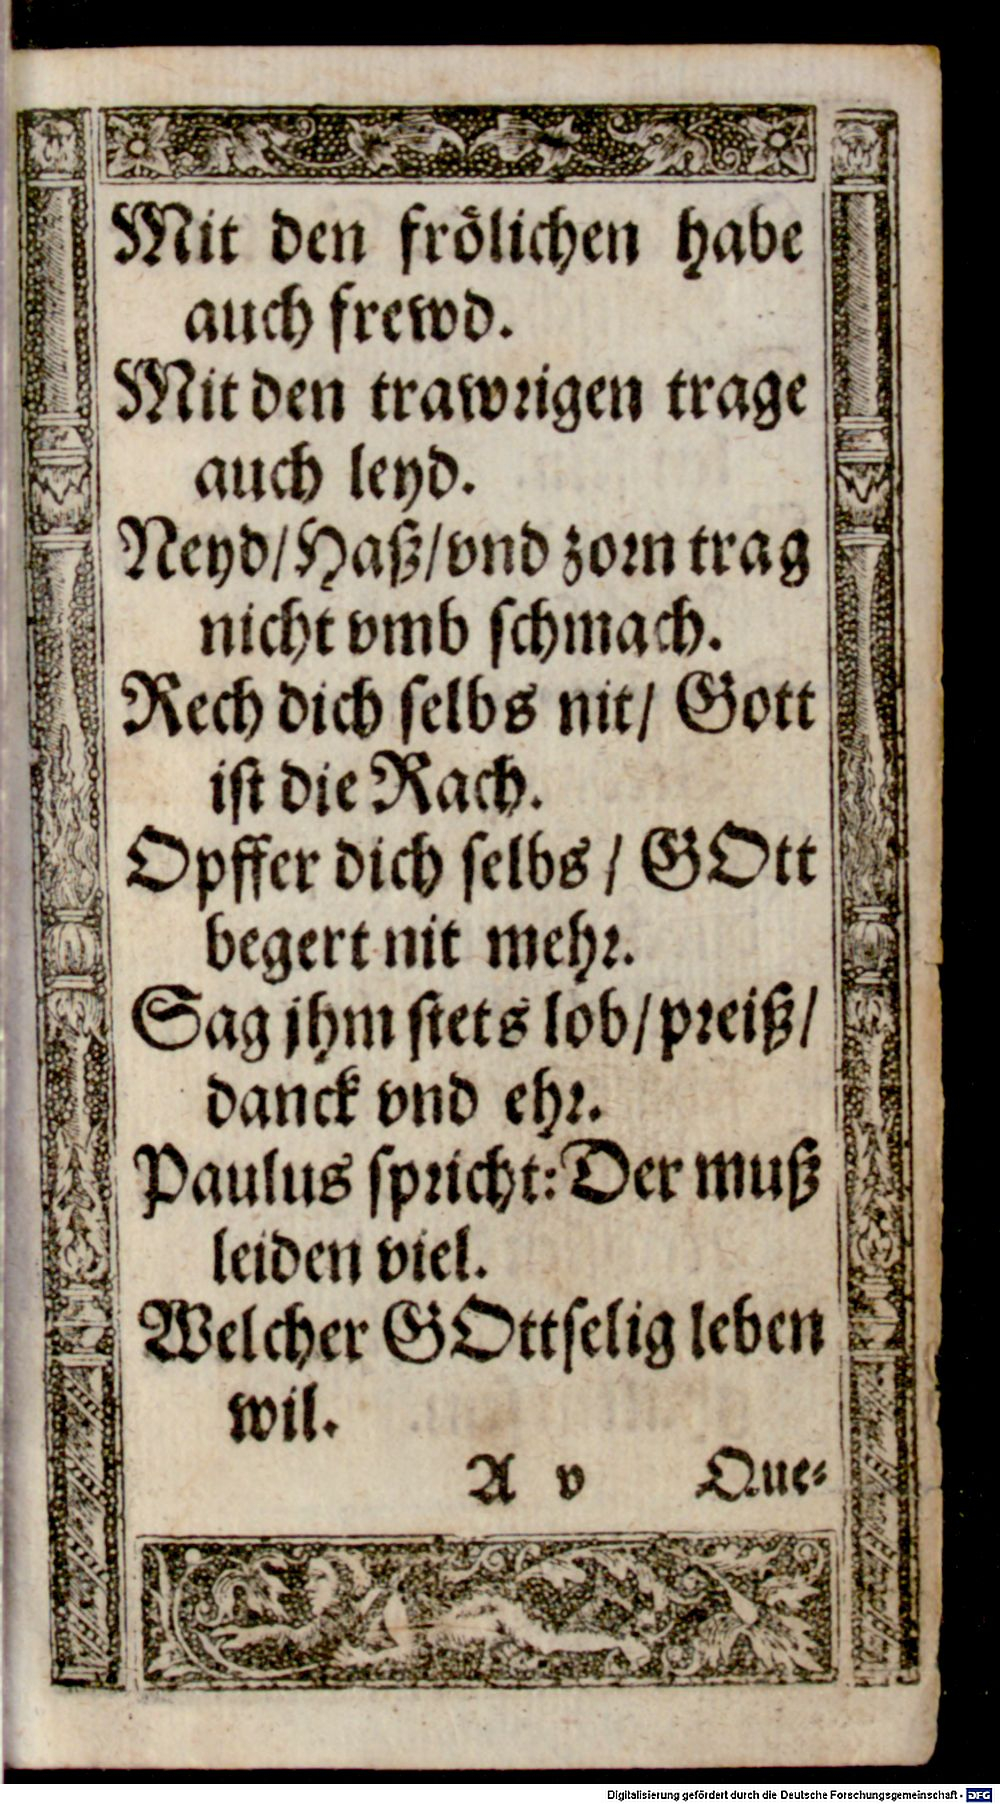 Mit den frölichen habe
auch frewd.
Mit den trawrigen trage
auch leyd.
Neyd/Haß/vnd zorn trag
nicht vmb schmach.
Rech dich selbs nit/ Gott
ist die Rach.
Opffer dich selbs / GOtt
begert nit mehr.
Sag jhm stets lob/preiß/
danck vnd ehr.
Paulus spricht: Der muß
leiden viel.
Welcher GOttselig leben
wil.
A v Que-
Digitalisierung gefördert durch die Deutsche Forschungsgemeinschaft - DFG